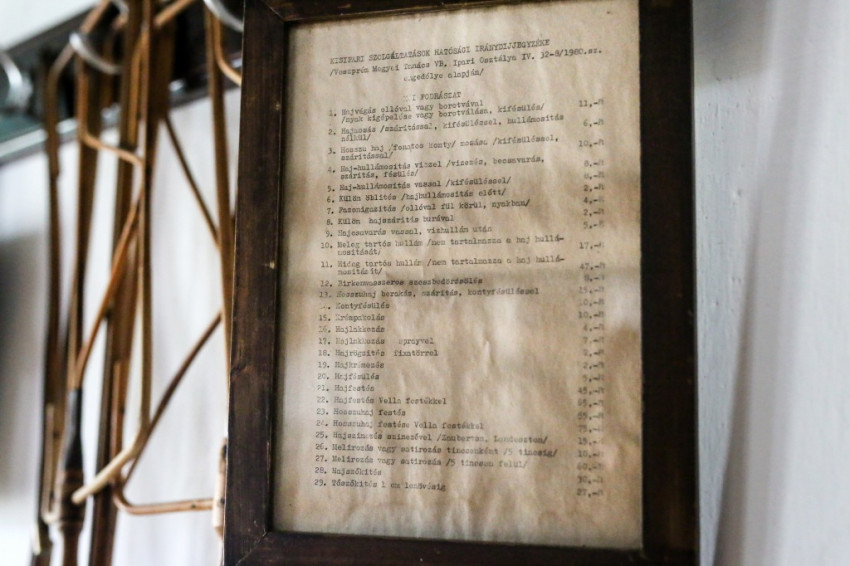 KISIPARI SZOLGÁLTATÁSOK HATÓSÁGI IRÁNYDIJJEGYZÉKE
/Veszprém Megyei Tanács VB. Ipari Osztálya IV. 32-8/1980.sz.
engedélye alapján/
FODRÁSZAT
1. Hajvágás ollóval vagy borotvával
/nyak kigépelése vagy borotválása, kifésülés/ 11,-
2. Hajmosás /szárítással, kifésüléssel, hullámosítás
nélkül/ 6,-
3. Hosszu haj /fonatos konty/ mosása /kifésüléssel,
szárítással/ 10,-
4. Haj-hullámosítás vizzel /vizezés, becsavarás,
szárítás, fésülés/ 8,-
5. Haj-hullámosítás vassal /kifésüléssel/ 8,-
6. Külön öblítés /hajhullámosítás előtt/ 2,-
7. Fazonigazitás /ollóval fül körül, nyakban/ 4,-
8. Külön hajszárítás burával 2,-
9. Hajcsavarás vassal, vizhullám után 5,-
10. Meleg tartós hullám /nem tartalmazza a haj hullá-
mosítását/ 17,-
11. Hideg tartós hullám /nem tartalmazza a haj hullá-
mosítását/ 47,-
12. 8,-
13. Hosszuhaj berakás, szárítás, kontyfésüléssel 15,-
Kontyfésülés
15. Krémpakolás 10,-
Hajlakkozás 4,-
17. Hajlakkozás sprayvel 7,-
18. Hajrögzítés fixatőrrel
19. 2,-
20. Hajfésülés
21. Hajfestés
22. Hajfestés Vella festékkel 65,-
23. Hosszuhaj festés 55,-
24. Hosszuhaj festése Vella festékkel 75,-
25. Hajszinezés szinezővel 15,-
26. Melirozás vagy satirozás tincsenként /5 tincsig/ 10,-
27. Melirozás vagy satirozás /5 tincsen felül/ 60,-
28. Hajszőkítés 30,-
29. Tőszőkítés 1 cm lenövésig 27,-